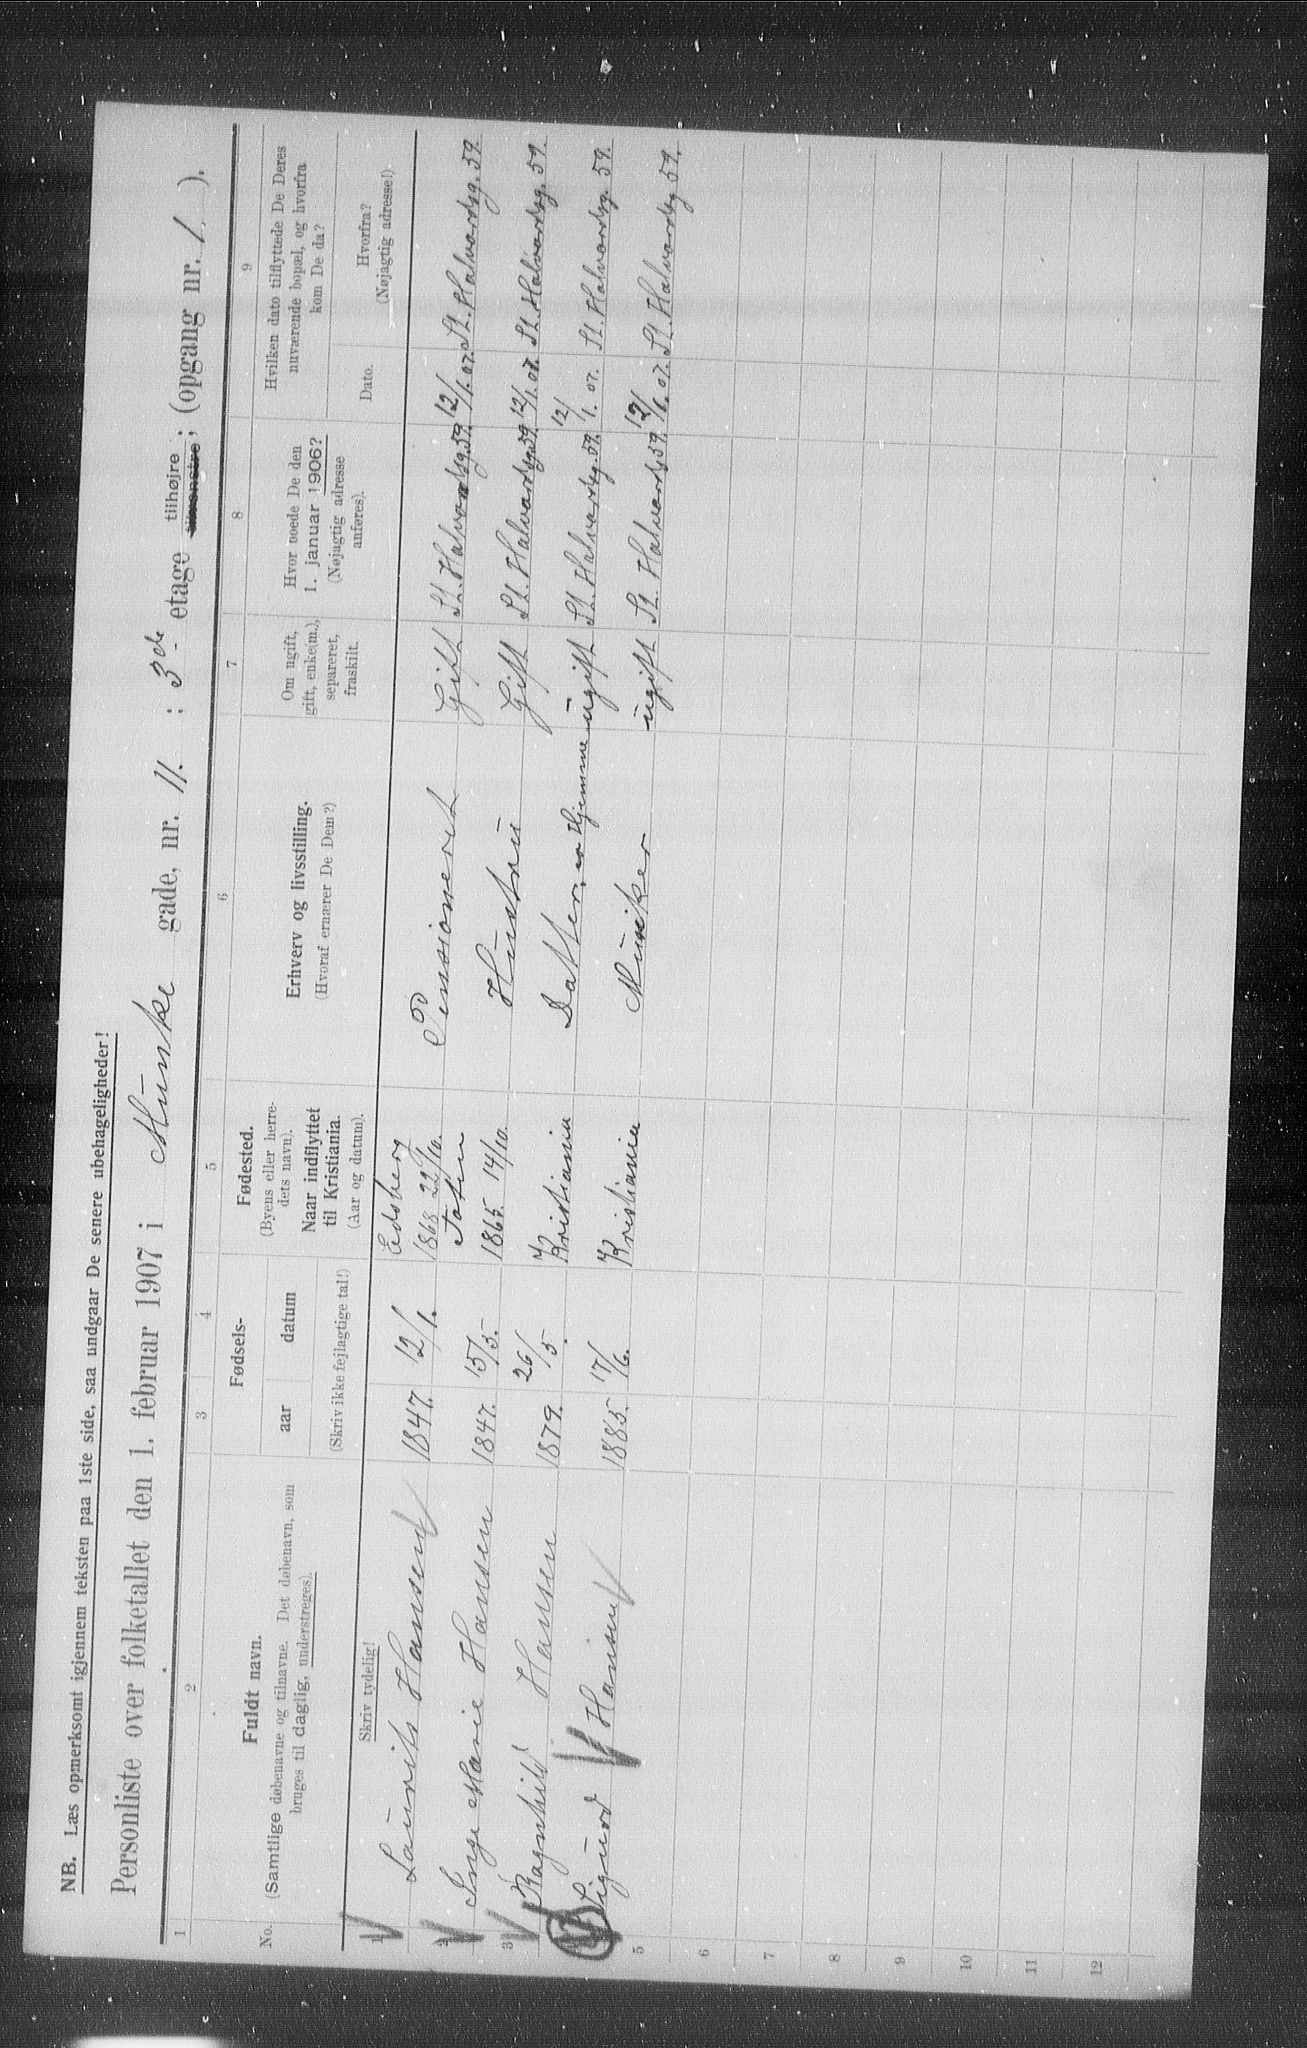 NB. Læs opmerksomt igjennem teksten paa 1ste side, saa undgaar De senere ubehageligheder!
Personliste over folketallet den 1. februar 1907 i Munke gade, nr. 11. ; 3de etage tilhøjre tilvenstre; (opgang nr. 1. ).
1 2 3 4 5 6 7 8 9
No.
Fuldt navn.
(Samtlige døbenavne og tilnavne. Det døbenavn, som
bruges til daglig, understreges).
Skriv tydelig!
Fødsels-
aar datum
(Skriv ikke fejlagtige tal!)
Fødested.
(Byens eller herre-
dets navn).
Naar indflyttet
til Kristiania.
(Aar og datum).
Erhverv og livsstilling.
(Hvoraf ernærer De Dem?)
Om ugift,
gift, enke(m.),
separeret,
fraskilt.
Hvor boede De den
1. januar 1906?
(Nøjagtig adresse
anføres).
Hvilken dato tilflyttede De Deres
nuværende bopæl, og hvorfra
kom De da?
Dato.
Hvorfra?
(Nøjagtig adresse!)
1 Laurits Hansen 1847. 12/1. Edsberg 1868 22/10. Pensioneret Gift St. Halvardsg. 59. 12/1. 07. St. Halvardsg. 59.
2 Inge Marie Hansen 1847. 15/3. Toten 1865 14/10. Hustru Gift St. Halvardsg. 59. 12/1. 07. St. Halvardsg. 59.
3 Ragnhild Hansen 1879. 26/5. Kristiania Datter, er Hjemme ugift St. Halvardsg. 59. 12/1. 07. St. Halvardsg. 59.
Sigurd Hansen 1885. 17/6. Kristiania Musiker ugift St. Halvardsg 59. 12/1. 07. St. Halvardsg 59.
5
6
7
8
9
10
11
12